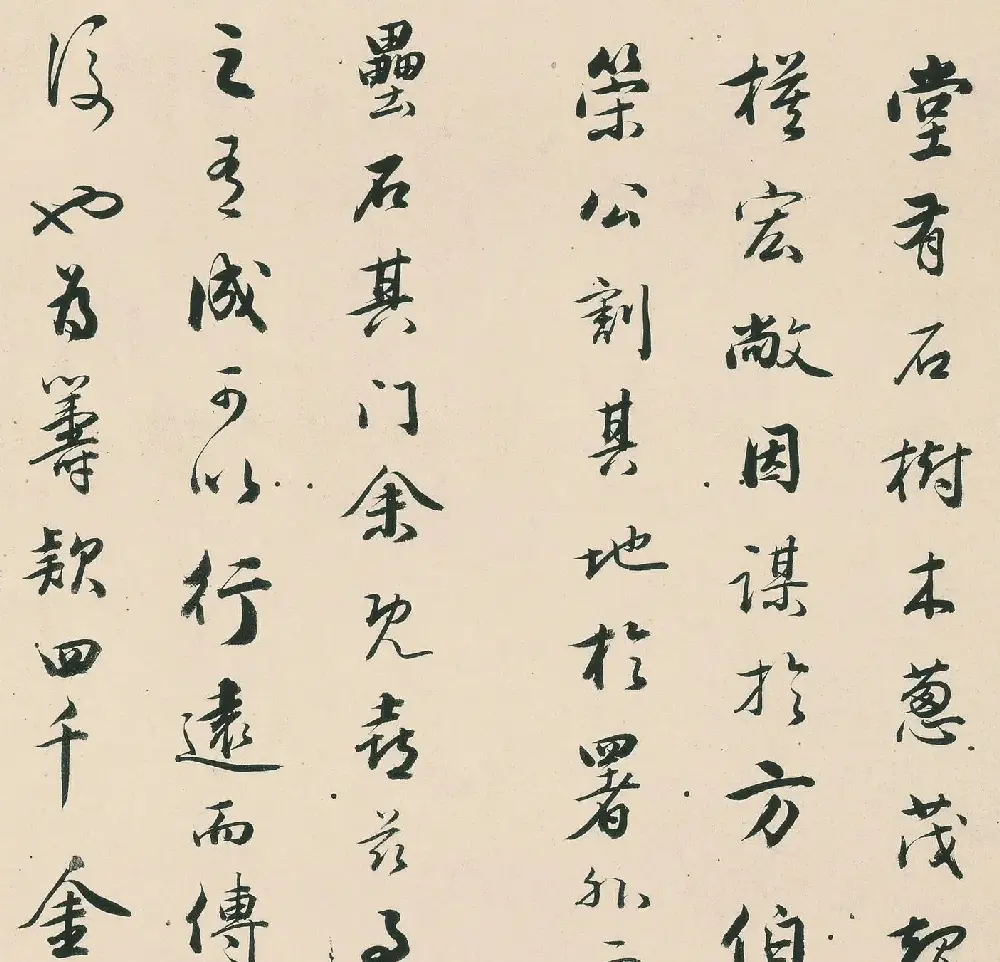 堂有石樹木蔥茂規
模宏敞因謀於方伯
榮公割其地於署外
壘石其門余既喜茲事
之有成可以行遠而傳
後也為籌款四千金